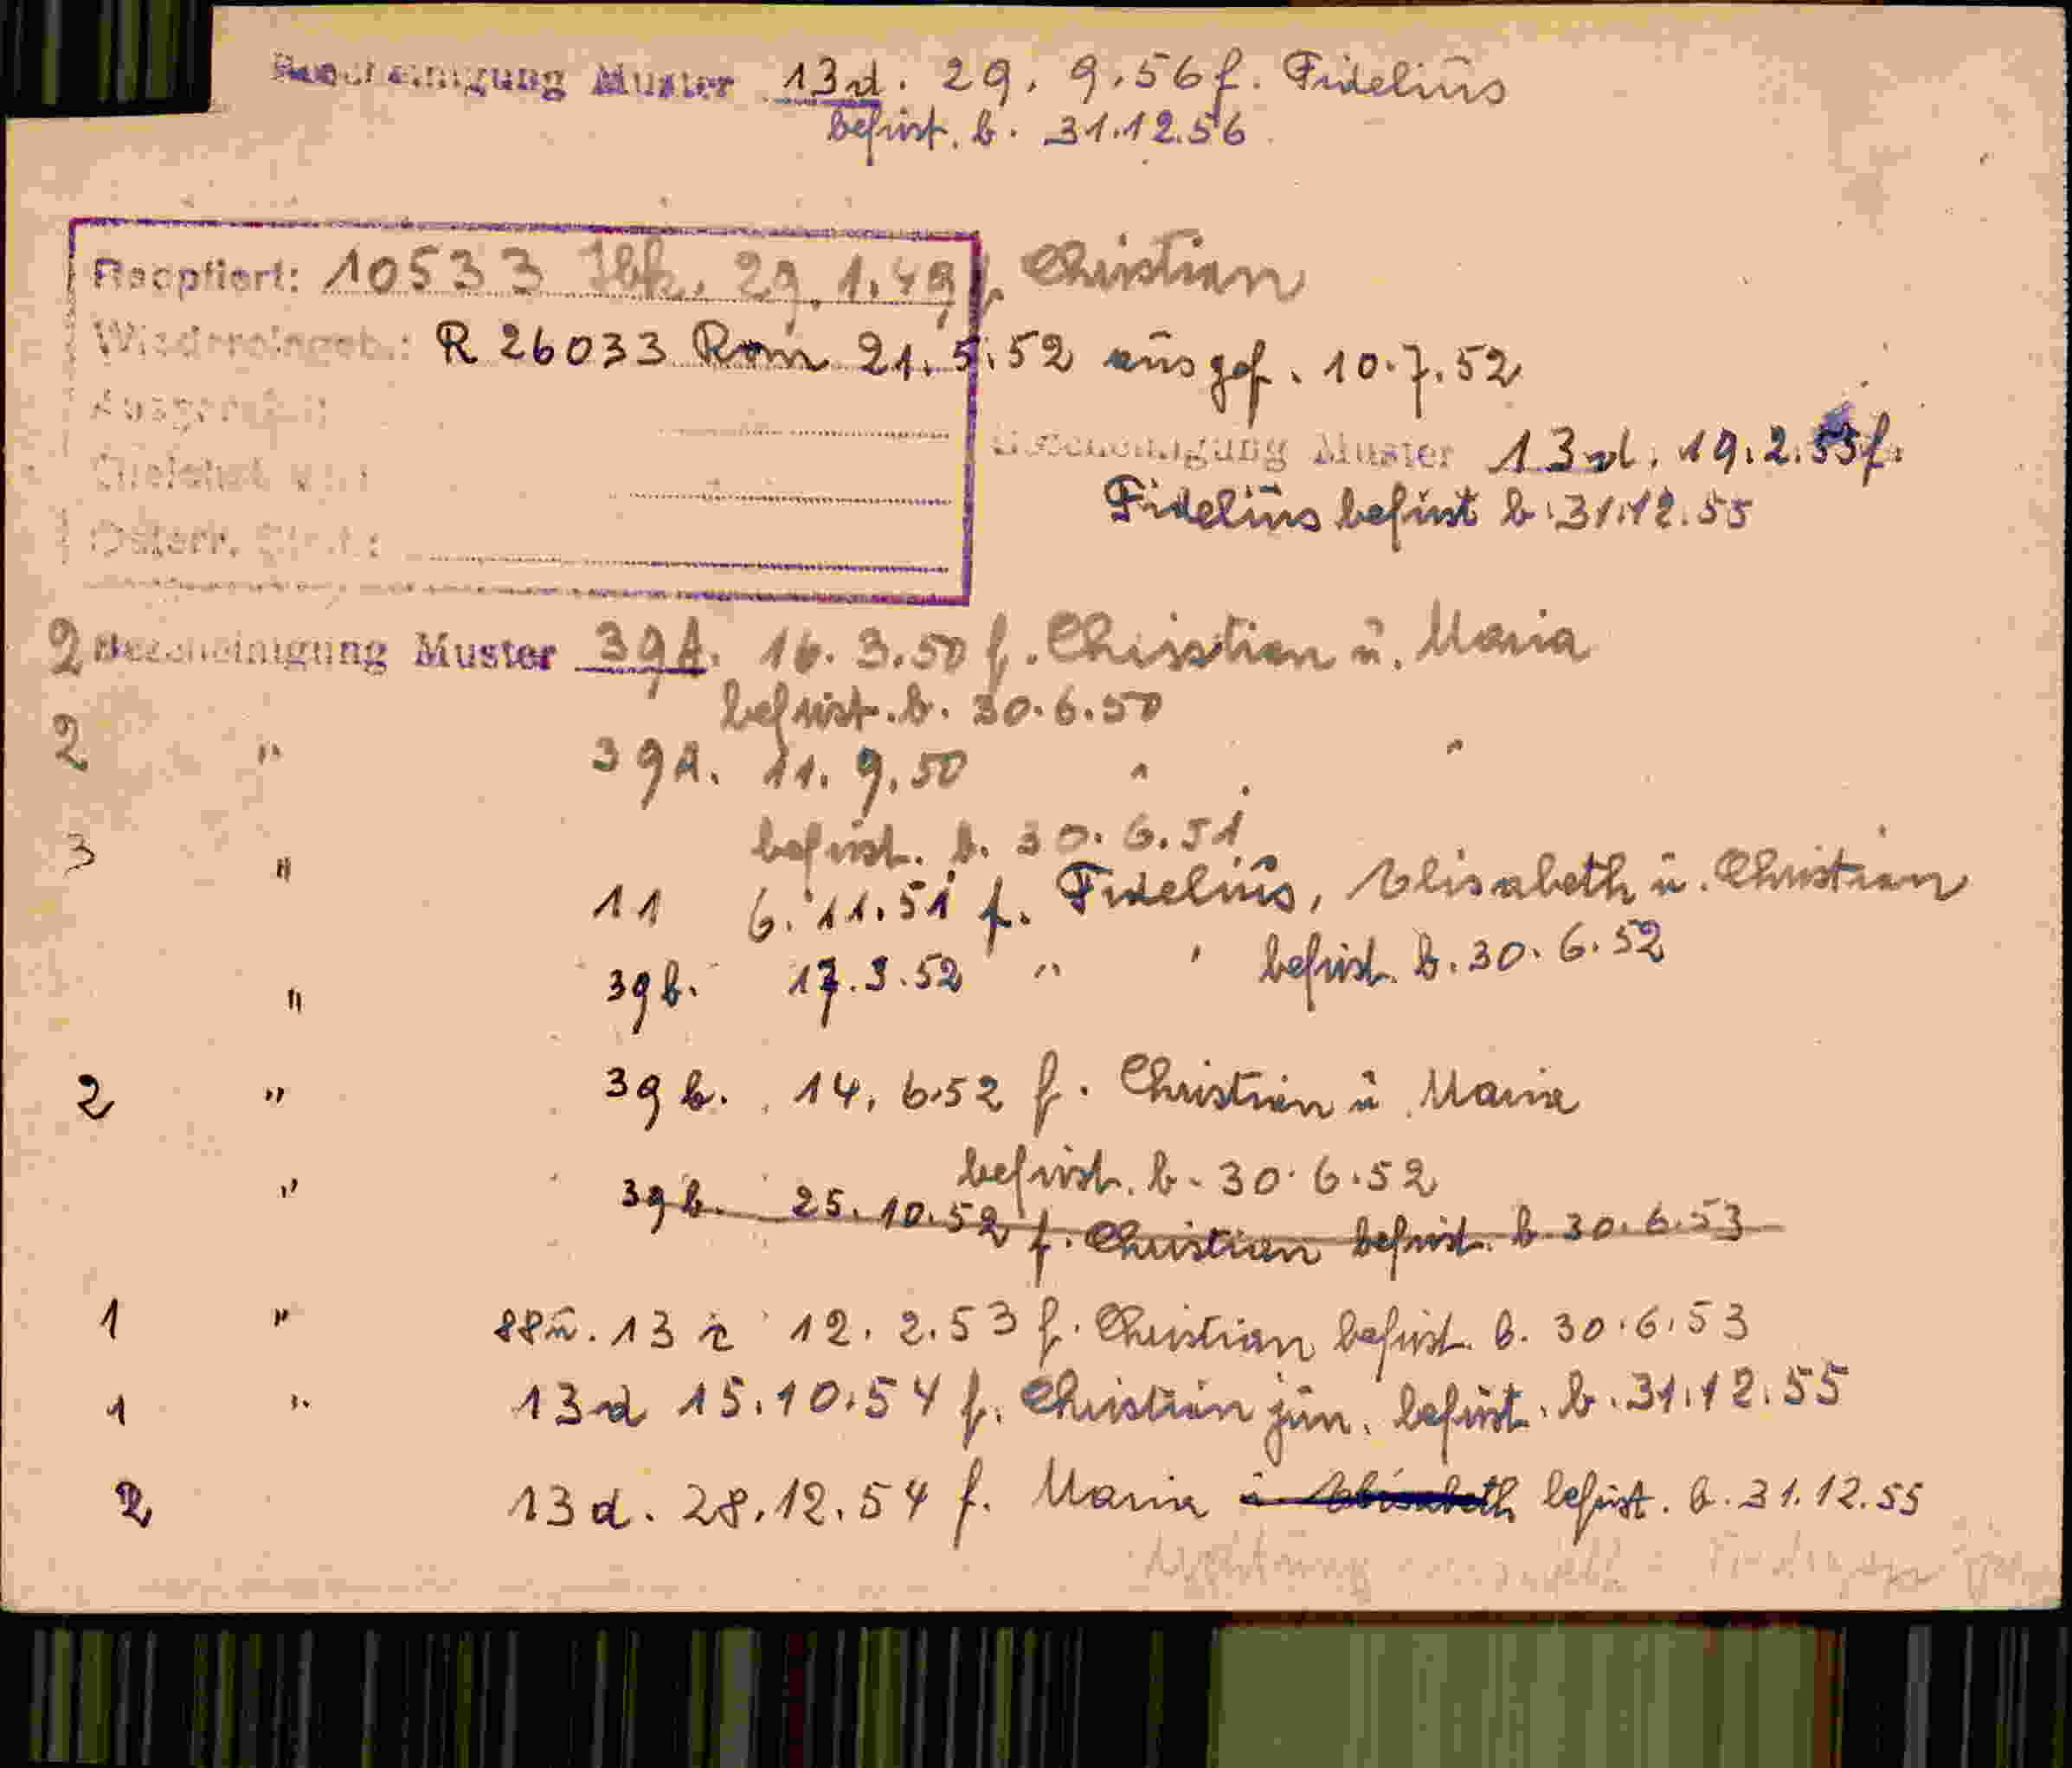 Bescheinigung Muster 13d. 29. 9.56 f. Fidelius
befrist. b. 31.12.56
Reoptiert: 10533 Ibk. 29.1.49 f. Christian
Wiedereingeb.: R 26033 Rom 21.5.52 ausgef. 10.7.52
Bescheinigung Muster 13d. 19.2.55 f.
Fidelius befrist b. 31.12.55
Österr.
2 Bescheinigung Muster 39A. 16.3.50 f. Christian u. Maria
befrist. b. 30.6.50
2 " 39A. 11.9.50 " "
befrist. b. 30.6.51
3 " 11 6.11.51 f. Fidelius, Elisabeth u. Christian
" 39b. 17.3.52 " " befrist. b. 30.6.52
2 " 39b. 14.6.52 f. Christian u. Maria
befrist. b. 30.6.52
" 39b. 25.10.52 f. Christian befrist. b. 30.6.53
1 " 13 12.2.53 f. Christian befrist. b. 30.6.53
1 " 13d 15.10.54 f. Christian jun. befrist. b. 31.12.55
2 13d. 28.12.54 f. Maria u. Elisabeth befrist. b. 31.12.55